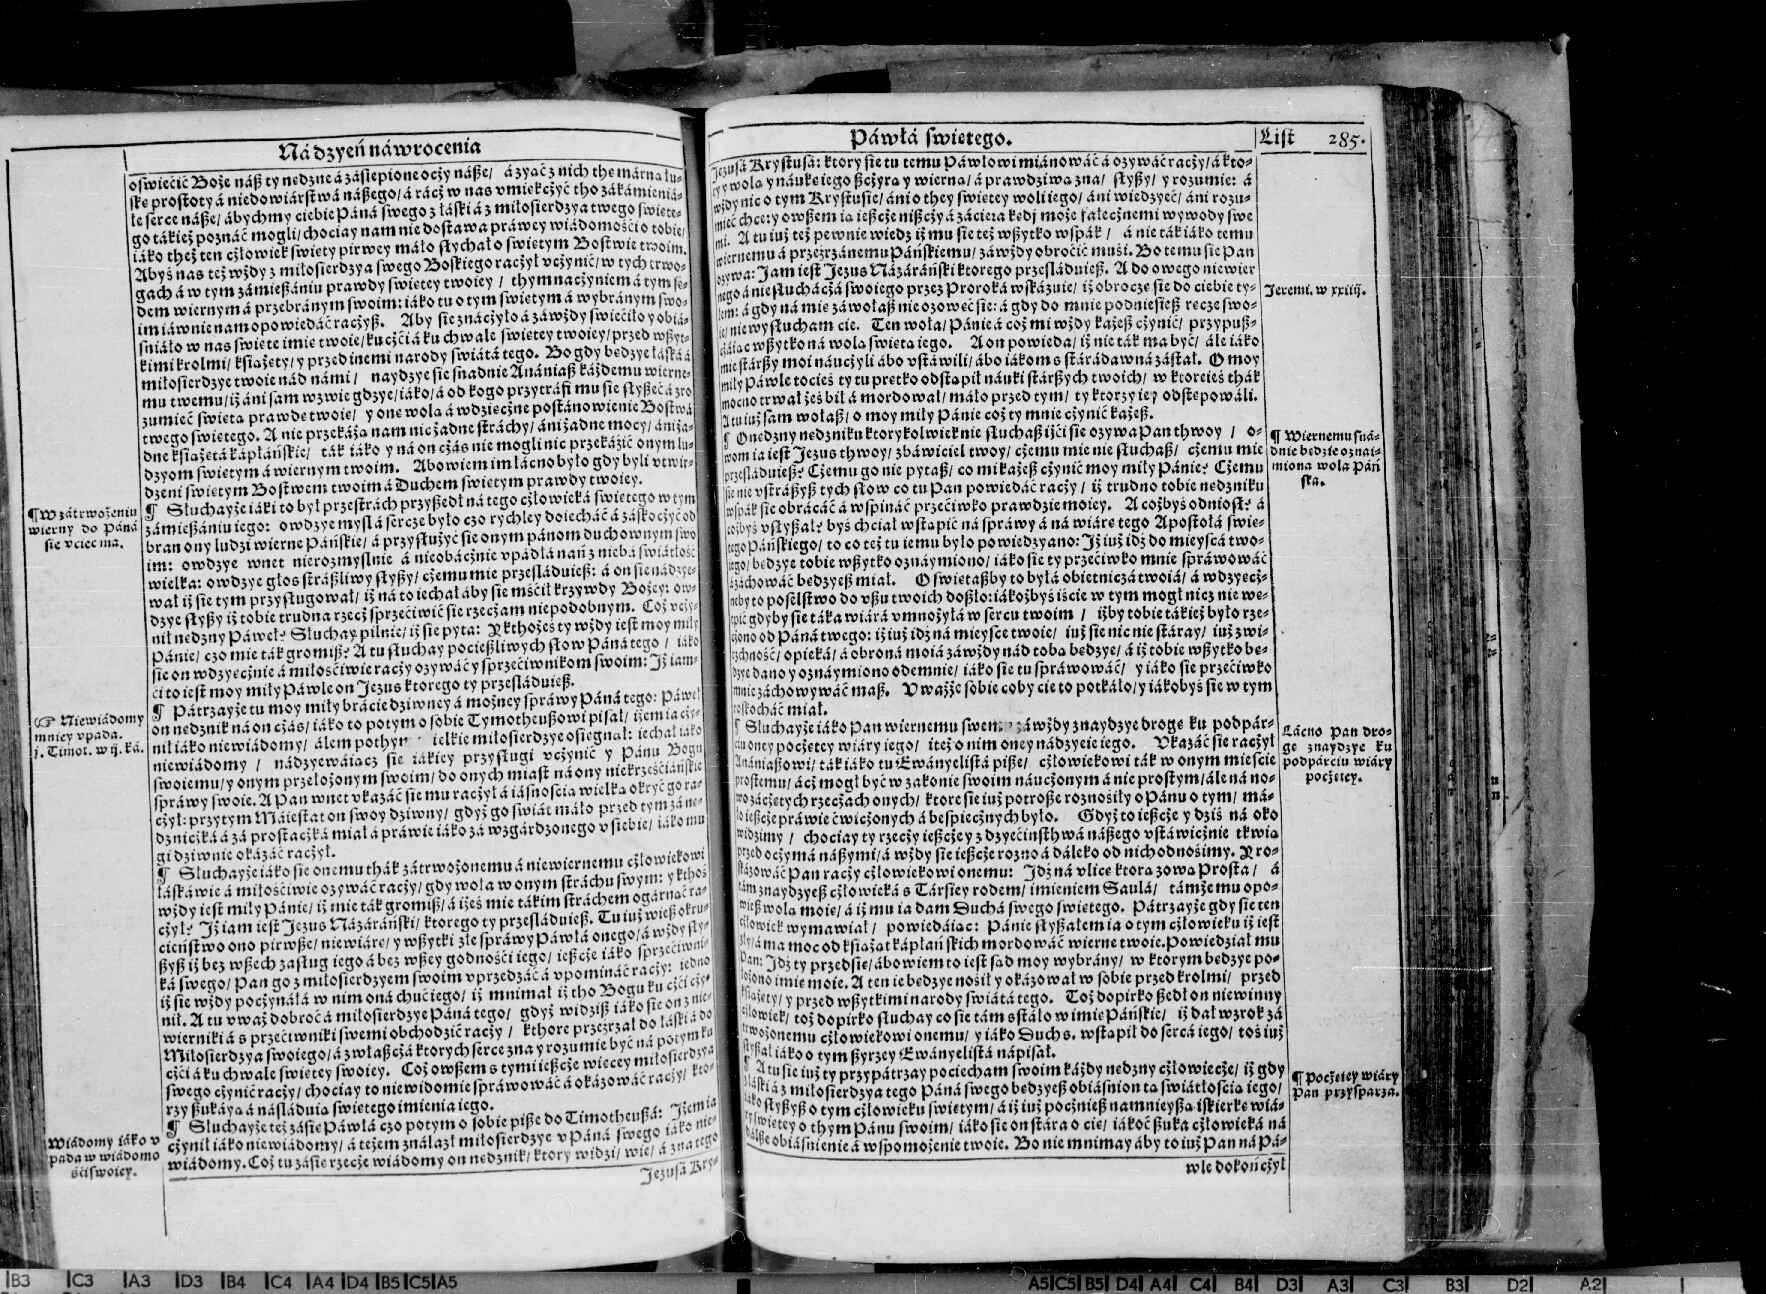 Ná dzyeń náwrocenia
oświećić Boże náß ty nedzne á záslepione ocży náße/ á zyáć z nich the márna lu-
ske prostoty á niedowiárstwá nášego/ á rácż w nas vmiekcżyć tho zákámieniá-
łe serce náße/ ábychmy ciebie Páná swego z łáski á z miłosierdzya twego swiete-
go tákież poznáć mogli/ choćiay nam nie dostawa práwey wiádomośći o tobie/
iáko theż ten cżłowiek swięty pirwey máło słychał o swietym Bostwie twoim.
Abyś nas też wżdy z miłosierdzya swego Boskiego racżył vcżynić/ w tych trwo-
gach á w tym zámießániu prawdy swietey twoiey/ thym nacżyniem á tym są-
dem wiernym á przebránym swoim: iáko tu o tym swietym á wybránym swo-
im iáwnie nam opowiedáć racżyß. Aby sie znácżyło á záwżdy swiećiło y obiá-
śniáło w nas swiete imie twoie/ ku cżći á ku chwale swietey twoiey/ przed wßyt-
kimi krolmi/ książety/ y przed inemi narody swiátá tego. Bo gdy bedzye łáská á
miłosierdzye twoie nád námi/ naydzye sie snádnie Anániaß káżdemu wierne-
mu twemu/ iż áni sam wzwie gdzye/ iáko/ á od kogo przytráfi mu sie słyßeć á zro
zumieć swieta prawde twoie/ y one wola á wdzięcżne postánowienie Bostwá
twego swietego. A nie przekáża nam nic żadne stráchy/ áni żadne mocy/ áni żá-
dne książetá kápłáńskie/ ták iáko y ná on cżás nie mogli nic przekázić onym lu-
dzyom swietym á wiernym twoim. Abowiem im łácno było gdy byli vtwir-
dzeni swietym Bostwem twoim á Duchem swietym prawdy twoiey.
¶ Słuchayże iáki to był przestrách przyßedł ná tego cżłowieká swietego w tym
zámießániu iego: owdzye myślá w sercze było czo rychley doiecháć á záskocżyć od
bran ony ludzi wierne Páńskie/ á przysłużyć sie onym pánom duchownym swo
im: owdzye wnet nierozmyślnie á nieobácżnie vpádłá náń z niebá swiátłość
wielka: owdzye głos stráßliwy słyßy/ cżemu mie przesláduieß: á on sie nádzye-
wał iż sie tym przysługował/ iż ná to iechał aby sie mśćił krzywdy Bożey: ow-
dzye słyßy iż tobie trudna rzecż sprzećiwić sie rzecżam niepodobnym. Coż vcży-
nił nedzny Páweł? Słuchay pilnie/ iż sie pyta: Y kthożeś ty wżdy iest moy miły
Pánie/ czo mie ták gromiß? A tu słuchay poćießliwych słow Páná tego/ iáko
sie on wdzyecżnie á miłośćiwie racży ozywáć y sprzećiwnikom swoim: Iż iam-
ći to iest moy miły Páwle on Jezus ktorego ty przesláduieß.
¶ Pátrzayże tu moy miły bráćie dziwney á możney spráwy Páná tego: Páweł
on nedznik ná on cżás/ iáko to potym o sobie Tymotheußowi pisał/ iżem ia cży-
nił iáko niewiádomy/ álem pothym ielkie miłosierdzye ośiegnął: iechał iáko
niewiádomy/ nádzyewáiąc sie iákiey przysługi vcżynić y Pánu Bogu
swoiemu/ y onym przełożonym swoim/ do onych miast ná ony niekrześćiáńskie
spráwy swoie. A Pan wnet vkázáć sie mu racżył á iásnością wielka okryć go ra-
cżył: przytym Máiestat on swoy dziwny/ gdyż go swiát máło przed tym zá ne-
dznicżká á zá prostacżká miał á práwie iáko zá wzgárdzonego v siebie/ iáko mu
gi dziwnie okázáć racżył.
¶ Słuchayże iáko sie onemu thák zátrwożonemu á niewiernemu cżłowiekowi
łáskáwie á miłośćiwie ozywáć racży/ gdy woła w onym stráchu swym: y kthoś
wżdy iest miły Pánie/ iż mie ták gromiß/ á iżeś mie tákim stráchem ogárnąć ra-
cżył? Iż iam iest Jezus Názáráński/ ktorego ty przesláduieß. Tu iuż wieß okru-
ćieństwo ono pirwße/ niewiáre/ y wßytki złe spráwy Páwłá onego/ á wżdy sły-
ßyß iż bez wßech zasług iego á bez wßey godnośći iego/ ießcże iáko sprzećiwni-
ká swego/ Pan go z miłosierdzyem swoim vprzedzáć á vpomináć racży: iedno
iż sie wżdy pocżynáłá w nim oná chuć iego/ iż mnimał iż tho Bogu ku cżći cży-
nił. A tu vważ dobroć á miłosierdzye Páná tego/ gdyż widziß iáko sie on z nie-
wierniki á s przećiwniki swemi obchodzić racży/ kthore przeyzrzał do łáski á do
Miłosierdzya swoiego/ á zwłaßcżá ktorych serce zna y rozumie być ná potym ku
cżći á ku chwale swietey swoiey. Coż owßem s tymi ießcże wiecey miłosierdzya
swego cżynić racży/ choćiay to niewidomie spráwowáć á okázowáć racży/ kto-
rzy ßukáya á násláduia swietego imienia iego.
¶ Słuchayże też zásie Páwłá czo potym o sobie piße do Timotheußá: Iżem ia
cżynił iáko niewiádomy/ á teżem ználazł miłosierdzye v Páná swego iáko nie-
wiádomy. Coż tu zásie rzecże wiádomy on nedznik/ ktory widzi/ wie/ á zna tego
Jezusá Kry-
¶ W zátrwożeniu
wierny do Páná
sie vciec ma.
☞ Niewiádomy
mniey vpada.
j. Timot. w ij. ká.
Wiádomy iáko v
pada w wiádomo
śći swoiey.
Páwłá swietego.
List 285.
Jezusá Krystusá: ktory sie tu temu Páwłowi miánowáć á ozywáć racży/ á kto-
ry y wola y náuke iego ßcżyra y wierna/ á prawdziwa zna/ słyßy/ y rozumie: á
wżdy nic o tym Krystusie/ áni o they swietey woli iego/ áni wiedzyeć/ áni rozu-
mieć chce: y owßem ia ießcże nißcży á záćiera kedj może fałecżnemi wywody swe
mi. A tu iuż też pewnie wiedz iż mu sie też wßytko wspák/ á nie ták iáko temu
wiernemu á przezrzánemu Páńskiemu/ záwżdy obroćić muśi. Bo temu sie Pan
ozywa: Jam iest Jezus Názáráński ktorego przesláduieß. A do owego niewier
nego á niesłuchácżá swoiego przez Proroká wskázuie/ iż obrocze sie do ciebie ty-
łem: á gdy ná mie záwołaß nie ozowec sie: á gdy do mnie podnieśieß recze swo-
ie/ nie wysłucham cie. Ten woła/ Pánie á coż mi wżdy każeß cżynić/ przypuß-
cżáiac wßytko ná wola swieta iego. A on powieda/ iż nie ták ma być/ ále iáko
mie stárßy moi náucżyli ábo vstáwili/ ábo iákom s stárádawná zástał. O moy
miły Páwle tocieś ty tu pretko odstąpił náuki stárßych twoich/ w ktoreieś thák
mocno trwał żeś bił á mordował/ máło przed tym/ ty ktorzy iey odstepowáli.
A tu iuż sam wołaß/ o moy miły Pánie coż ty mnie cżynić każeß.
¶ O nedzny nedzniku ktorykolwiek nie słuchaß iżći sie ozywa Pan thwoy/ o-
wom ia iest Jezus thwoy/ zbáwiciel twoy/ cżemu mie nie słuchaß/ cżemu mie
przesláduieß? Cżemu go nie pytaß/ co mi każeß cżynić moy miły Pánie? Cżemu
sie nie vstráßyß tych słow co tu Pan powiedáć racży/ iż trudno tobie nedzniku
wspák sie obrácáć á wspináć przećiwko prawdzie moiey. A cożbyś odniosł? á
cożbyś vsłyßał? byś chciał wstąpić ná spráwy á ná wiáre tego Apostołá swie-
tego Páńskiego/ to co też tu iemu było powiedzyano: Iż iuż idź do mieyscá two-
iego/ bedzye tobie wßytko oznáymiono/ iáko sie ty przećiwko mnie spráwowáć
á záchowáć bedzyeß miał. O swietaßby to byłá obietnicżá twoiá/ á wdzyecż-
neby to poselstwo do vßu twoich doßło: iákożbyś iście w tym mogł nicz nie we-
tpić gdyby sie táka wiárá vmnożyłá w sercu twoim/ iżby tobie tákież było rze-
cżono od Páná twego: iż iuż idź ná mieysce twoie/ iuż sie nic nie stáray/ iuż zwi-
rzchność/ opieká/ á obroná moiá záwżdy nád toba bedzye/ á iż tobie wßytko be-
dzye dano y oznáymiono odemnie/ iáko sie tu spráwowáć/ y iáko sie przećiwko
mnie záchowywáć maß. Vważże sobie coby cie to potkáło/ y iákobyś sie w tym
roskocháć miał.
¶ Słuchayże iáko Pan wiernemu swemu záwżdy znaydzye droge ku podpár-
ciu oney pocżetey wiáry iego/ iteż o nim oney nádzyeie iego. Vkázáć sie racżył
Anániaßowi/ ták iáko tu Ewányelistá piße/ cżłowiekowi ták w onym mieście
prostemu/ ácż mogł być w zakonie swoim náucżonym á nie prostym/ ále ná no-
wo zácżetych rzecżach onych/ ktore sie iuż potroße roznośiły o Pánu o tym/ má-
ło ießcże práwie ćwicżonych á bespiecżnych było. Gdyż to ießcże y dziś ná oko
widzimy/ choćiay ty rzecży ießcże y z dzyećinsthwá nášego vstáwicżnie tkwia
przed ocżymá náßymi/ á wżdy sie ießcże rozno á dáleko od nich odnośimy. Y ro-
skázowáć Pan racży cżłowiekowi onemu: Idź ná vlice ktora zowa Prosta/ á
tám znaydzyeß cżłowieká s Társiey rodem/ imieniem Saulá/ támże mu opo-
wieß wola moie/ á iż mu ia dam Duchá swego swietego. Pátrzayże gdy sie ten
cżłowiek wymawiał/ powiedáiac: Pánie słyßałem ia o tym cżłowieku iż iest
zły/ á ma moc od książat kápłáńskich mordowáć wierne twoie. Powiedział mu
Pan: Idź ty przedsie/ ábowiem to iest sąd moy wybrány/ w ktorym bedzye po-
łożono imie moie. A ten ie bedzye nośił y okázował w sobie przed krolmi/ przed
książety/ y przed wßytkimi narody swiátá tego. Toż dopirko ßedł on niewinny
cżłowiek/ toż dopirko słuchay co sie tám sstáło w imie Páńskie/ iż dał wzrok zá
trwożonemu cżłowiekowi onemu/ y iáko Duch s. wstąpił do sercá iego/ toś iuż
słyßał iáko o tym ßyrzey Ewányelistá nápisał.
¶ A tu sie iuż ty przypátrzay pociecham swoim káżdy nedzny cżłowiecże/ iż gdy
z łáski á z miłosierdzya tego Páná swego bedzyeß obiáśnion ta swiátłoscia iego/
iáko słyßyß o tym cżłowieku swietym/ á iż iuż pocżnieß namnieyßa iskierke wiá-
ry swietey o thym Pánu swoim/ iáko sie on stára o cie/ iákoć ßuka cżłowieká ná
dálße obiáśnienie á wspomożenie twoie. Bo nie mnimay áby to iuż Pan ná Pá-
wle dokońcżył
Jeremi. w xxiiij.
¶ Wiernemu sná-
dnie bedzie oznai-
miona wola Páń
ska.
Łácno Pan dro-
ge znaydzye ku
podpárciu wiáry
pocżetey.
¶ Pocżetey wiáry
Pan przysparza.
B3 C3 A3 D3 B4 C4 A4 D4 B5 C5 A5
A5 C5 B5 D4 A4 C4 B4 D3 A3 C3 B3 D2 A2